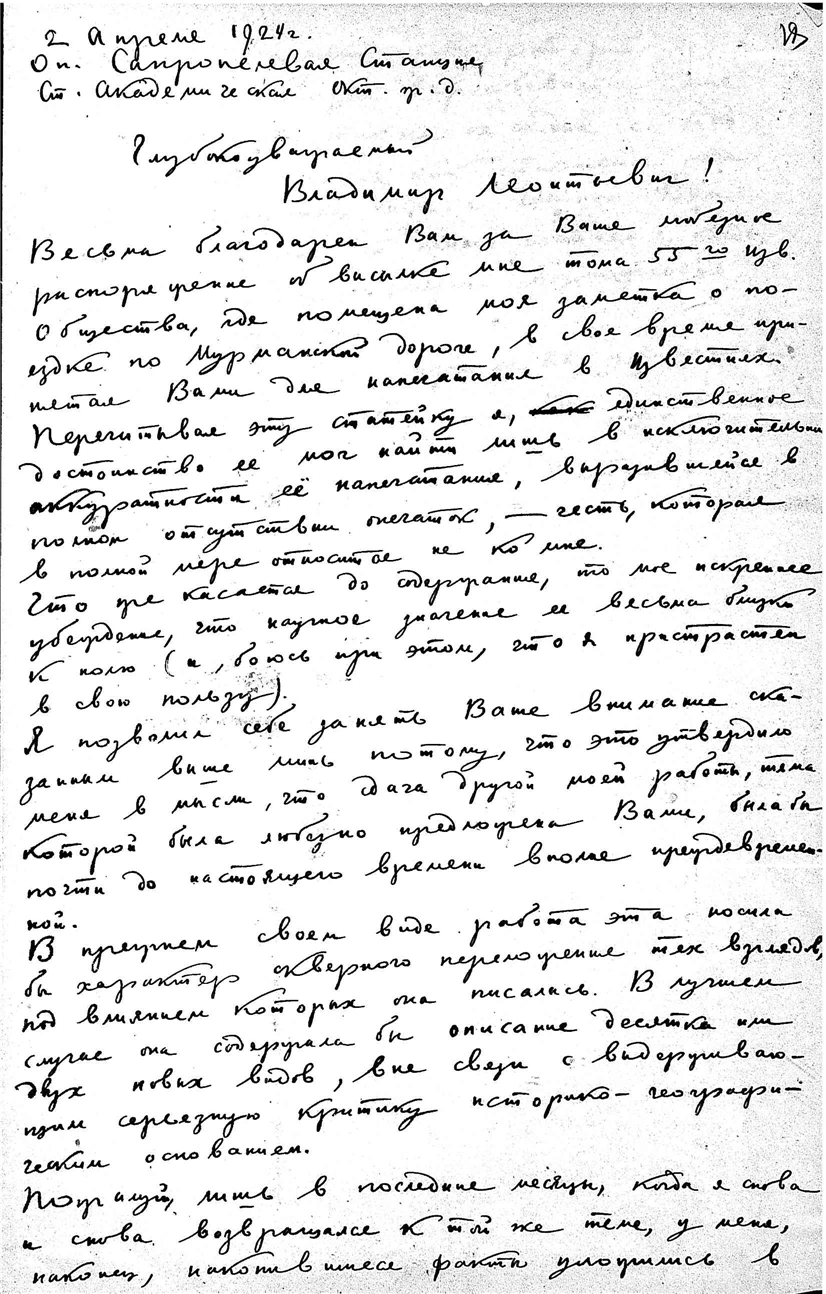 2 Апреля 1924 г.
Оп. Сапропелевая Станция,
Ст. Академическая Окт. ж. д.
Глубокоуважаемый
Владимир Леонтьевич!
Весьма благодарен Вам за Ваше любезное
распоряжение об высылке мне тома 55го Изв.
Общества, где помещена моя заметка о по-
ездке по Мурманской дороге, в свое время при-
нятая Вами для напечатания в Известиях.
Перечитывая эту статейку я, единственное
достоинство ее мог найти лишь в исключительной
аккуратности её напечатания, выразившейся в
полном отсутствии опечаток, — честь, которая
в полной мере относится не ко мне.
Что же касается до содержания, то мое искреннее
убеждение, что научное значение ее весьма близко
к нолю (и, боюсь при этом, что я пристрастен
в свою пользу).
Я позволил себе занять Ваше внимание ска-
занным выше лишь потому, что это утвердило
меня в мысли, что сдача другой моей работы, тема
которой была любезно предложена Вами, была бы
почти до настоящего времени вполне преждевремен-
ной.
В прежнем своем виде работа эта носила
бы характер скверного переложения тех взглядов,
под влиянием которых она писалась. В лучшем
случае она содержала бы описание десятка или
двух новых видов, вне связи с выдерживаю-
щим серьезную критику историко-географи-
ческим основанием.
Пожалуй, лишь в последние месяцы, когда я снова
и снова возвращался к той же теме, у меня,
наконец, накопившиеся факты уложились в